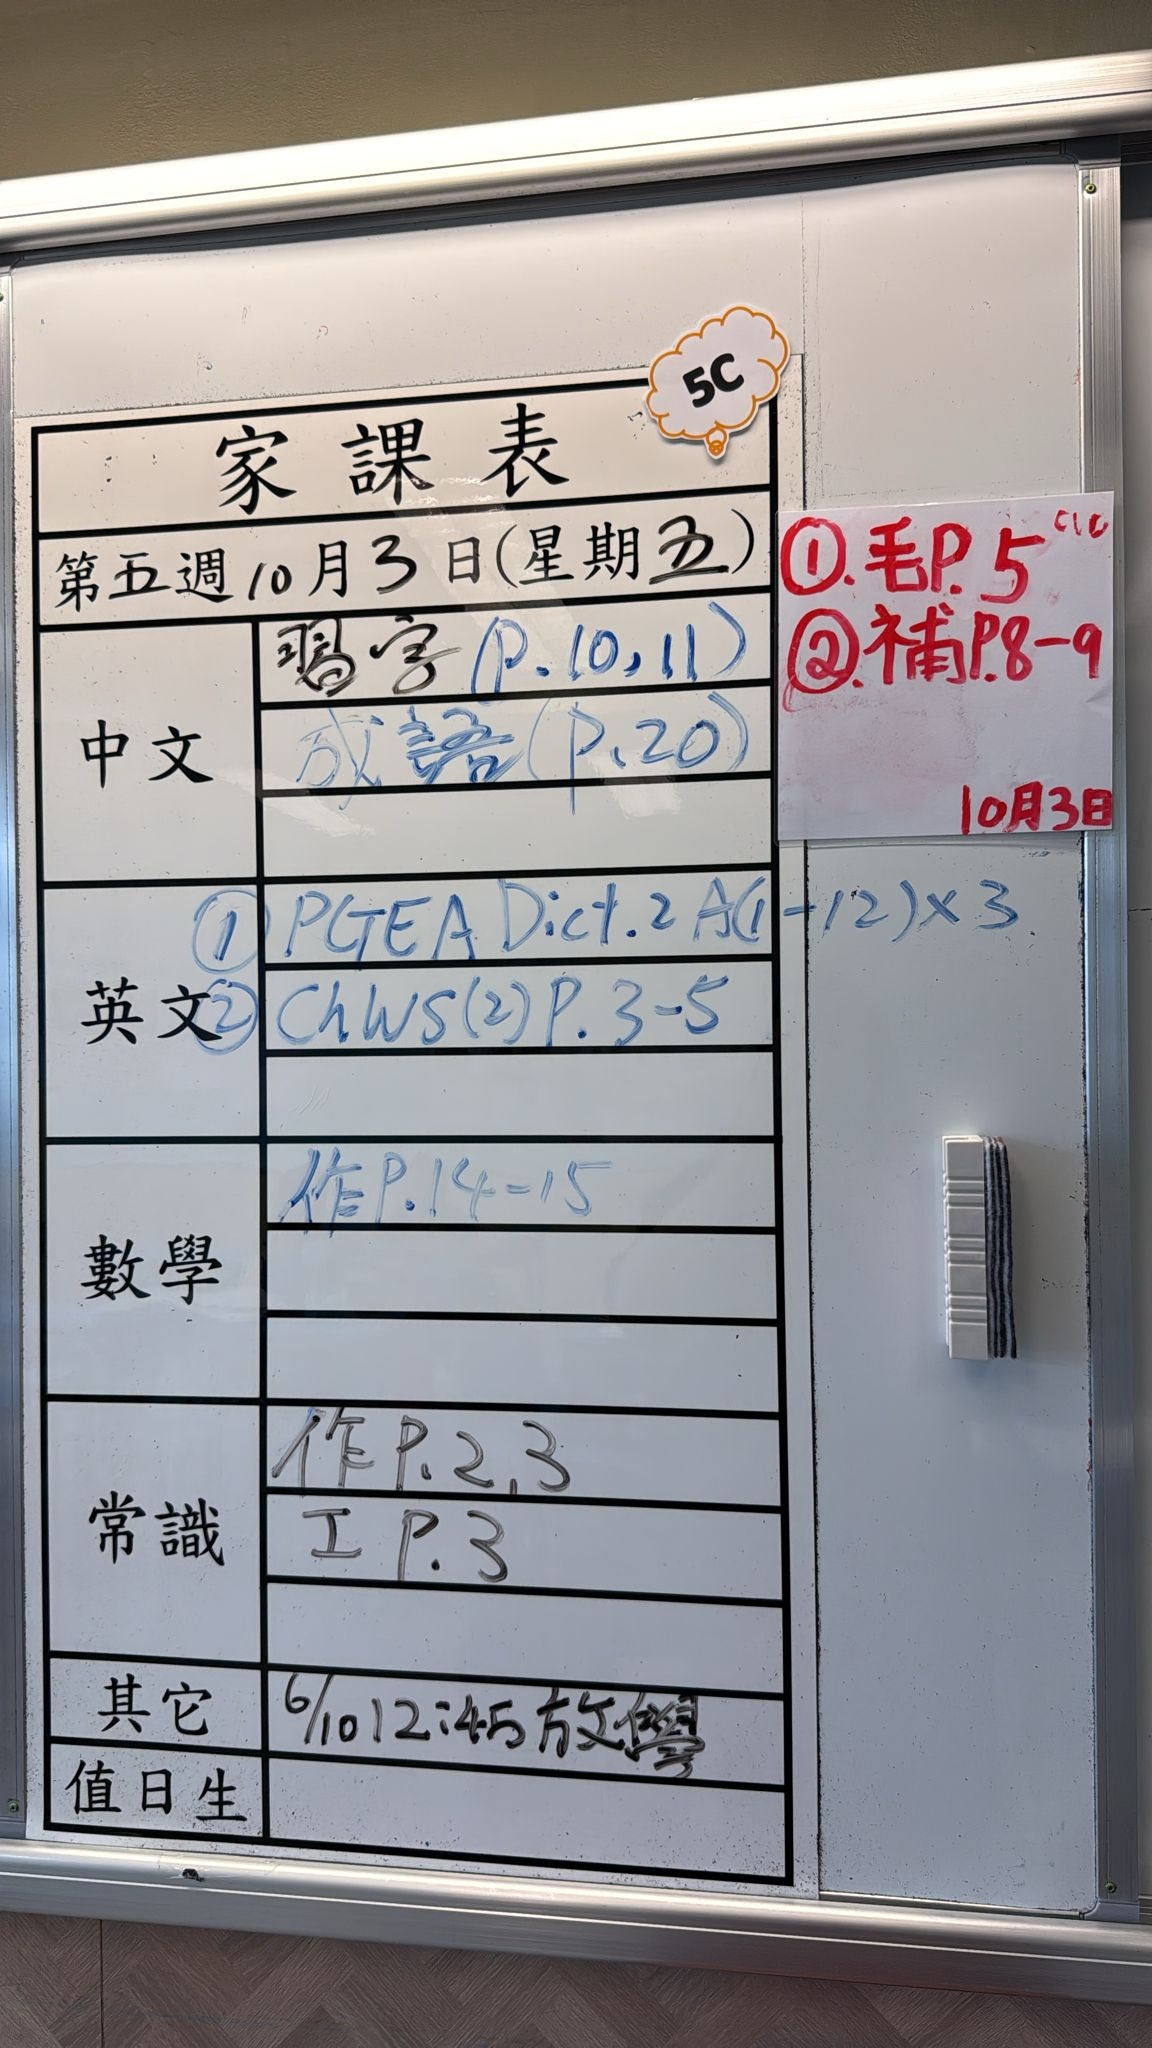 5C
家課表
第五週10月3日(星期五)
中文
習字(p.10,11)
成語(p.20)
英文
① PGEA Dict.2A(1-12)×3
② Ch.WS(2)P.3-5
數學
作P.14-15
常識
作P.2,3
工 P.3
其它
6/10 12:45放學
值日生
①.毛P.5
②.補P.8-9
10月3日